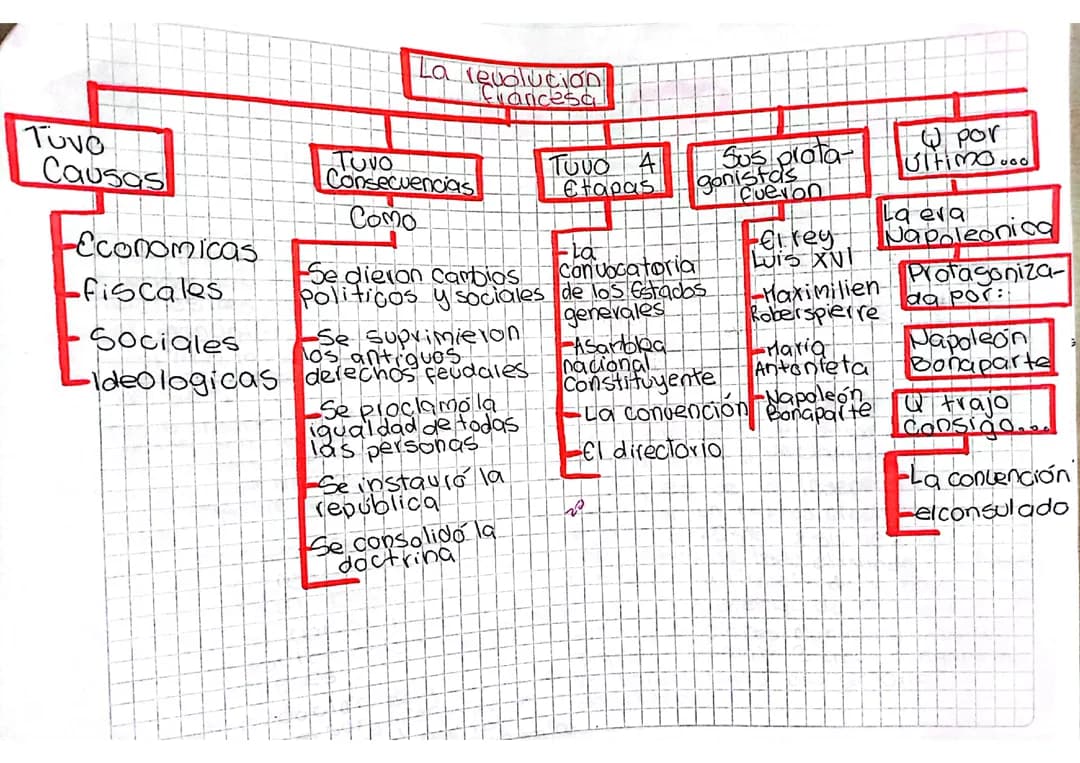 La revolución
francesa
Tuvo
Causas
-Economicas
-fiscales
-Sociales
-Ideologicas
Tuvo
Consecuencias
Como
-Se dieron cambios
politicos y sociales
-Se suprimieron
los antiguos
derechos feudales
-Se proclamó la
igualdad de todas
las personas
-Se instauró la
república
-Se consolidó la
doctrina
Tuvo 4
Etapas
-La
convocatoria
de los Estados
generales
-Asamblea
nacional
Constituyente
-La convención
-El directorio
Sus prota-
gonistas
fueron
-El rey
Luis XVI
-Maximilien
Roberspierre
-Maria
Antonieta
-Napoleón
Bonaparte
Y por
último...
La era
Napoleonica
Protagoniza-
da por:
Napoleón
Bonaparte
Y trajo
Consigo...
-La convención
-el consulado